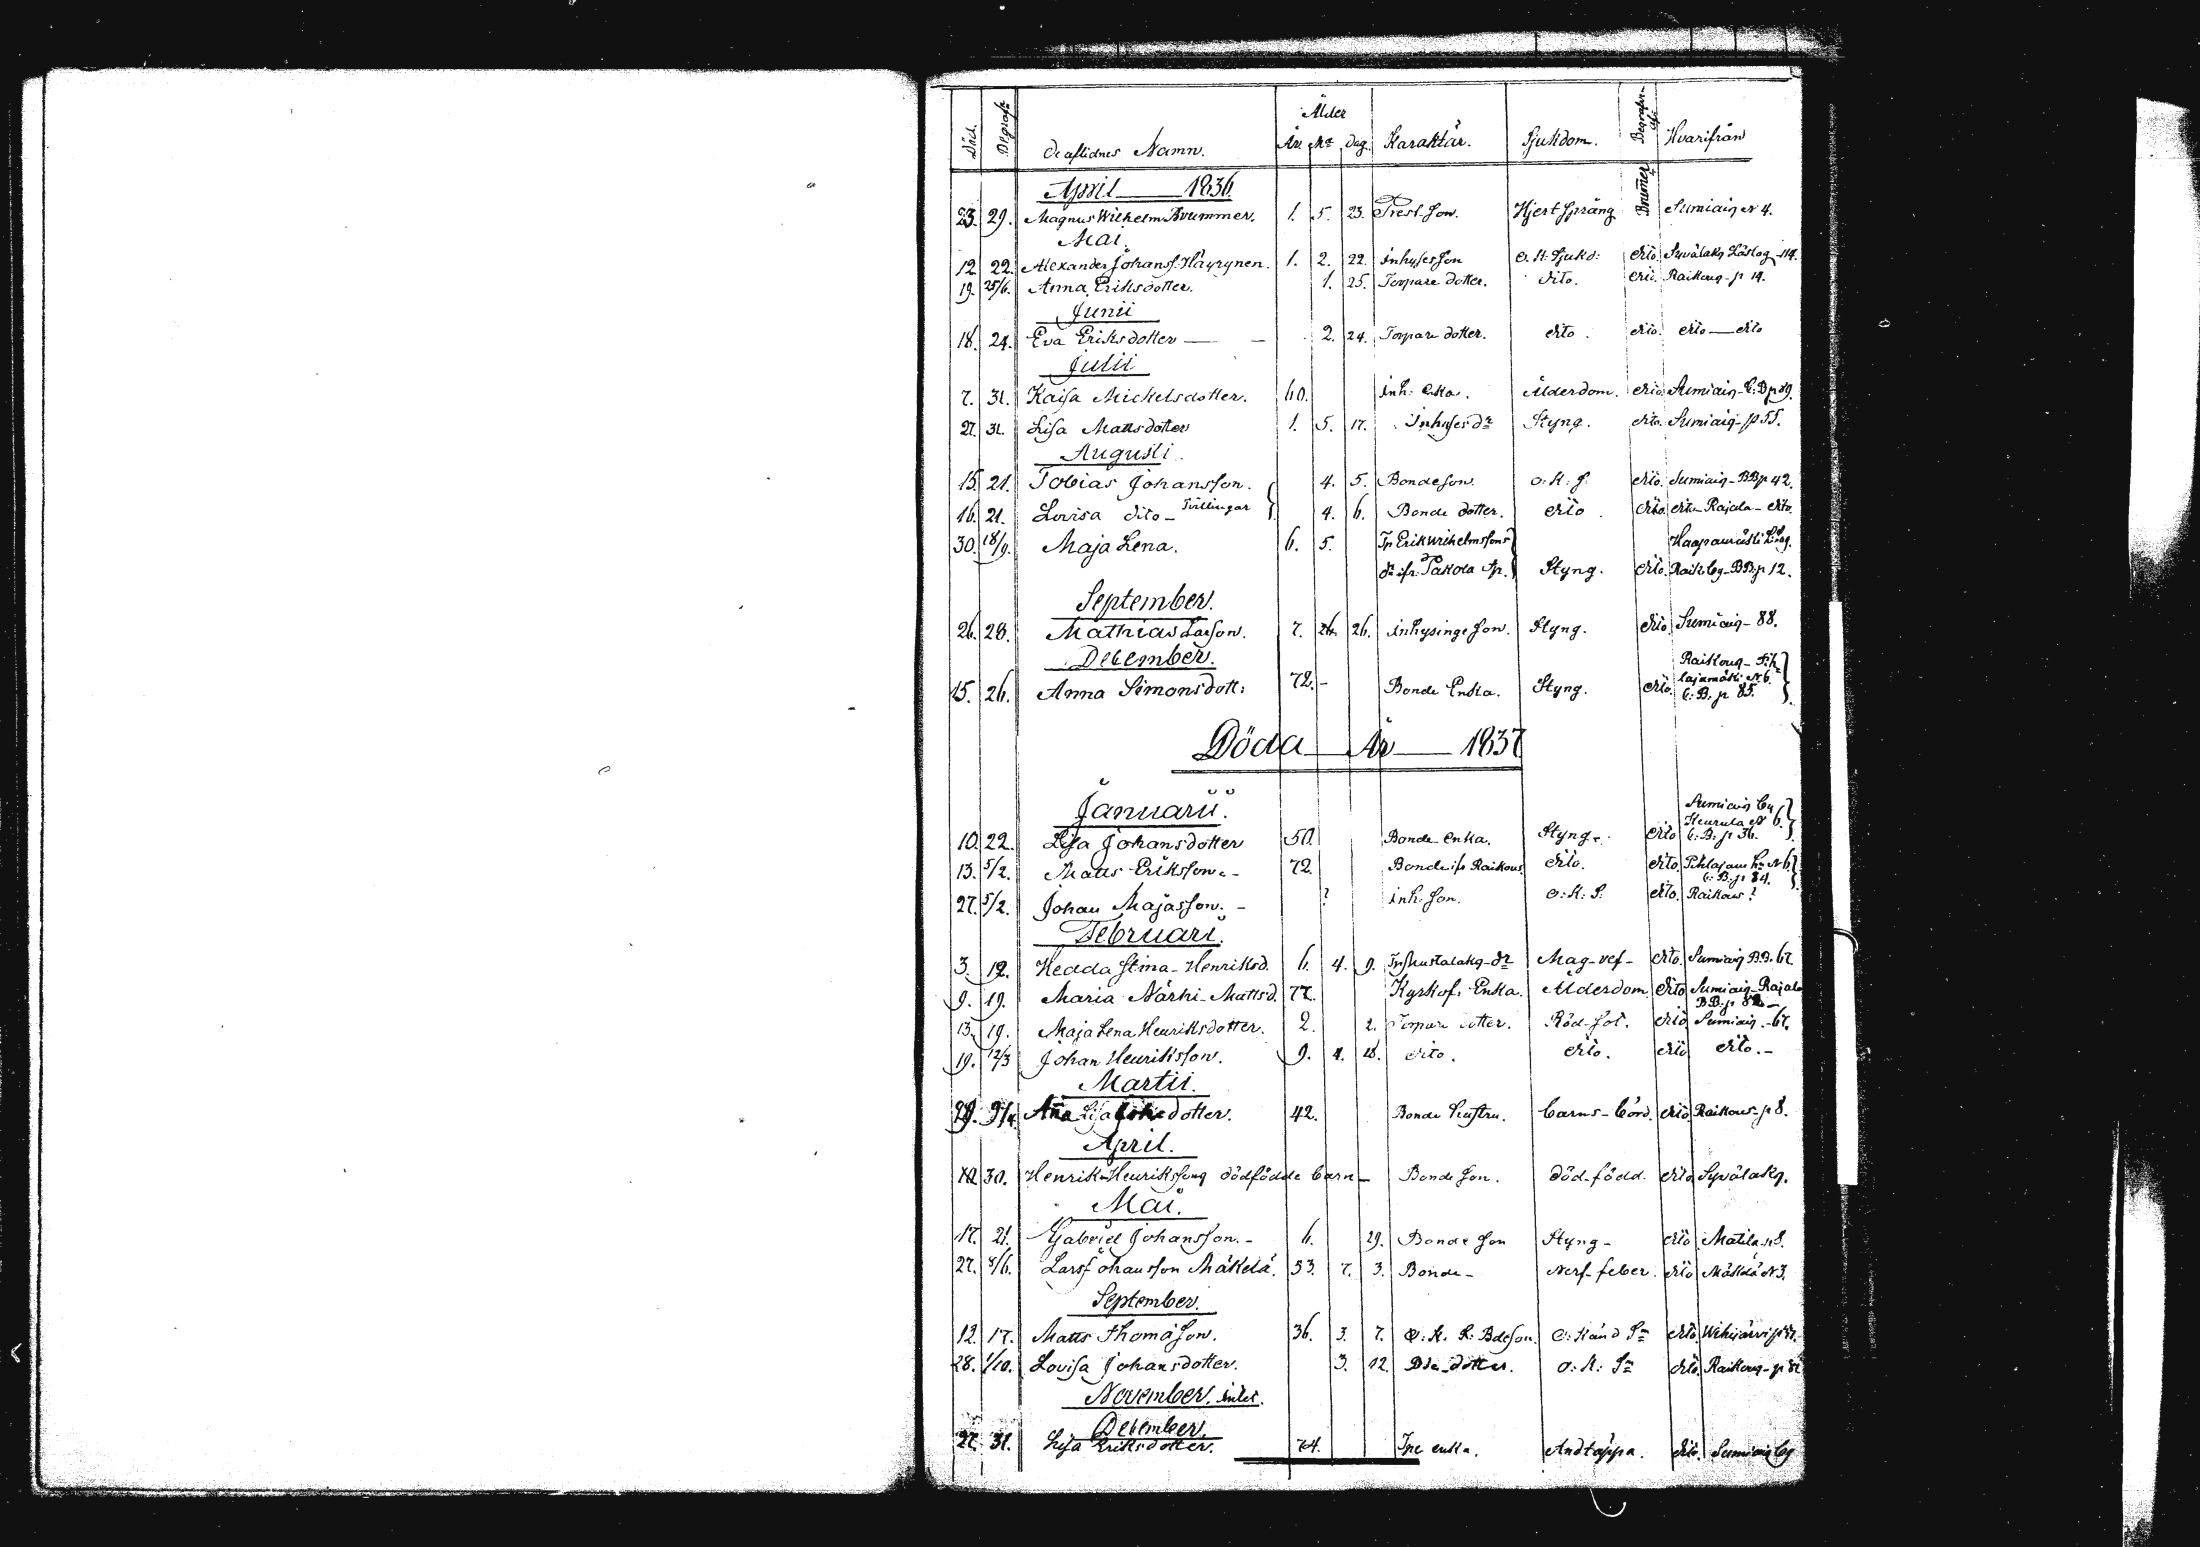 Död. Begrafn. de aflidnes Namn. Ålder År Mr dag. Karaktär. Sjukdom. Begrafn- Hvarifrån
April 1836
23. 29. Magnus Wilhelm Brummer. 1. 5. 23. Prest Son. Hjertspräng Brumer Sumiais N 4.
Mai
12 22. Alexander Johanss. Häyrynen. 1. 2. 22. inhyses Son O. K. Sjukd: dito Syvälaks
19. 25/6. Anna Eriksdotter. 1. 25. Torpare dotter. dito. dito. Raikoug- p 14.
Junii
18. 24. Eva Eriksdotter 2. 24. Torpare dotter. dito. dito. dito dito
Julii
7. 31. Kaisa Mickelsdotter. 60. inh. enka. Ålderdom. dito Sumiain- C:B p 89.
27. 31. Lisa Mattsdotter 1. 5. 17. Inhyses dr Styng. dito. Sumiaig- p 55.
Augusti
15. 21. Tobias Johansson. 4. 5. Bonde son. o. K. S. dito. Sumiaig- BB p 42.
16. 21. Lovisa dito- Tvillingar 4. 6. Bonde dotter. dito. dito dito- Rajala- dito.
30. 18/9. Maja Lena. 6. 5. Tp Erik Wilhelmssons
dr ifr. Pakola Tp. Styng. dito. Raik. by- BB. p 12.
September.
26. 28. Mathias Larson. 7. 26. inhysinge Son. Styng. dito Sumiaig- 88.
December.
15. 26. Anna Simonsdott: 72.- Bonde Enka. Styng. dito. Raikoug- Pih-
lajamäki N 6.
C: B. p 85.
Döda År 1837
Januarii.
10. 22. Lisa Johansdotter 50. Bonde enka. Styng. dito Sumiais by
Keurula N 6.
C: B. p 36.
13. 5/2. Matts Eriksson. - 72. Bonde ifr Raikous dito. dito. Pihlajam N 6
C: B. p 84.
27. 5/2. Johan Majasson. - ? inh. Son. o: K: S. dito. Raikous?
Februari.
3. 12. Hedda Stina- Henriksd. 6. 4. 9. Mag-ref- dito. Sumiaig B.B. 67.
9. 19. Maria Närhi- Mattsd. 77. Kyrkof. Enka. Ålderdom dito Sumiaig- Rajala
BB. p 82-
13. 19. Maja Lena Henriksdotter. 2. 2. Torpare dotter. Röd-Sot. dito Sumiaig.- 67.
19. 12/3 Johan Henriksson. 9. 4. 18. dito. dito. dito dito.-
Martii.
28. 9/4. Anna Lisa dotter. 42. Bonde hustru. Barns-börd. dito. Raikous- p 8.
April.
10 30. Henrik Henrikssons dödfödde barn- Bonde Son. död-född. dito Syvälaks.
Mai.
17. 21. Gabriel Johansson.- 6. 29. Bonde Son Styng- dito Matila N 8.
27. 4/6. Lars Johansson Mäkelä. 53. 7. 3. Bonde- Nerf-feber. dito Mäkelä N 3.
September.
12. 17. Matts Thomason. 36. 3. 7. Bdeson O: Känd Sm dito.
28. 1/10. Lovisa Johansdotter. 3. 12. Bde dotter. o. K: Sm dito. Raikoug-
November. intet.
December.
27. 31. Lisa Eriksdotter. 74. Tpe enka. Andtäppa. dito. Sumiais by